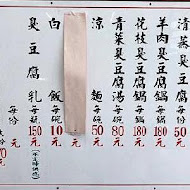 清蒸臭豆腐每份50元
羊肉臭豆腐鍋每鍋180元
花枝臭豆腐鍋每鍋180元
青菜臭豆腐湯每碗80元
涼麵每碗50元
白飯每碗10元
臭豆腐乳每瓶150元
每份
元
70元